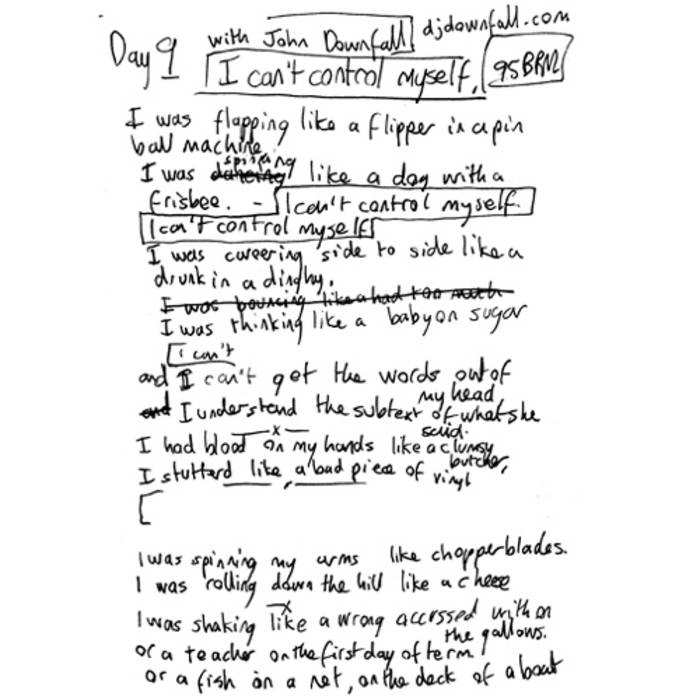 with John Downfall djdownfall.com
Day 9
I can't control myself, 95BPM
I was flapping like a flipper in a pin
ball machine,
spinning
I was dancing like a dog with a
frisbee. - I can't control myself.
I can't control myself
I was careering side to side like a
drunk in a dinghy.
I was bouncing like a had too much
I was thinking like a baby on sugar
i can't
and I can't get the words out of
my head
and I understand the subtext of what she
said.
I had blood on my hands like a clumsy
butcher,
I stutterd like a bad piece of vinyl
I was spinning my arms like chopper blades.
I was rolling down the hill like a cheese
I was shaking like a wrong accussed with on
the gallows.
or a teacher on the first day of term.
or a fish in a net, on the deck of a boat